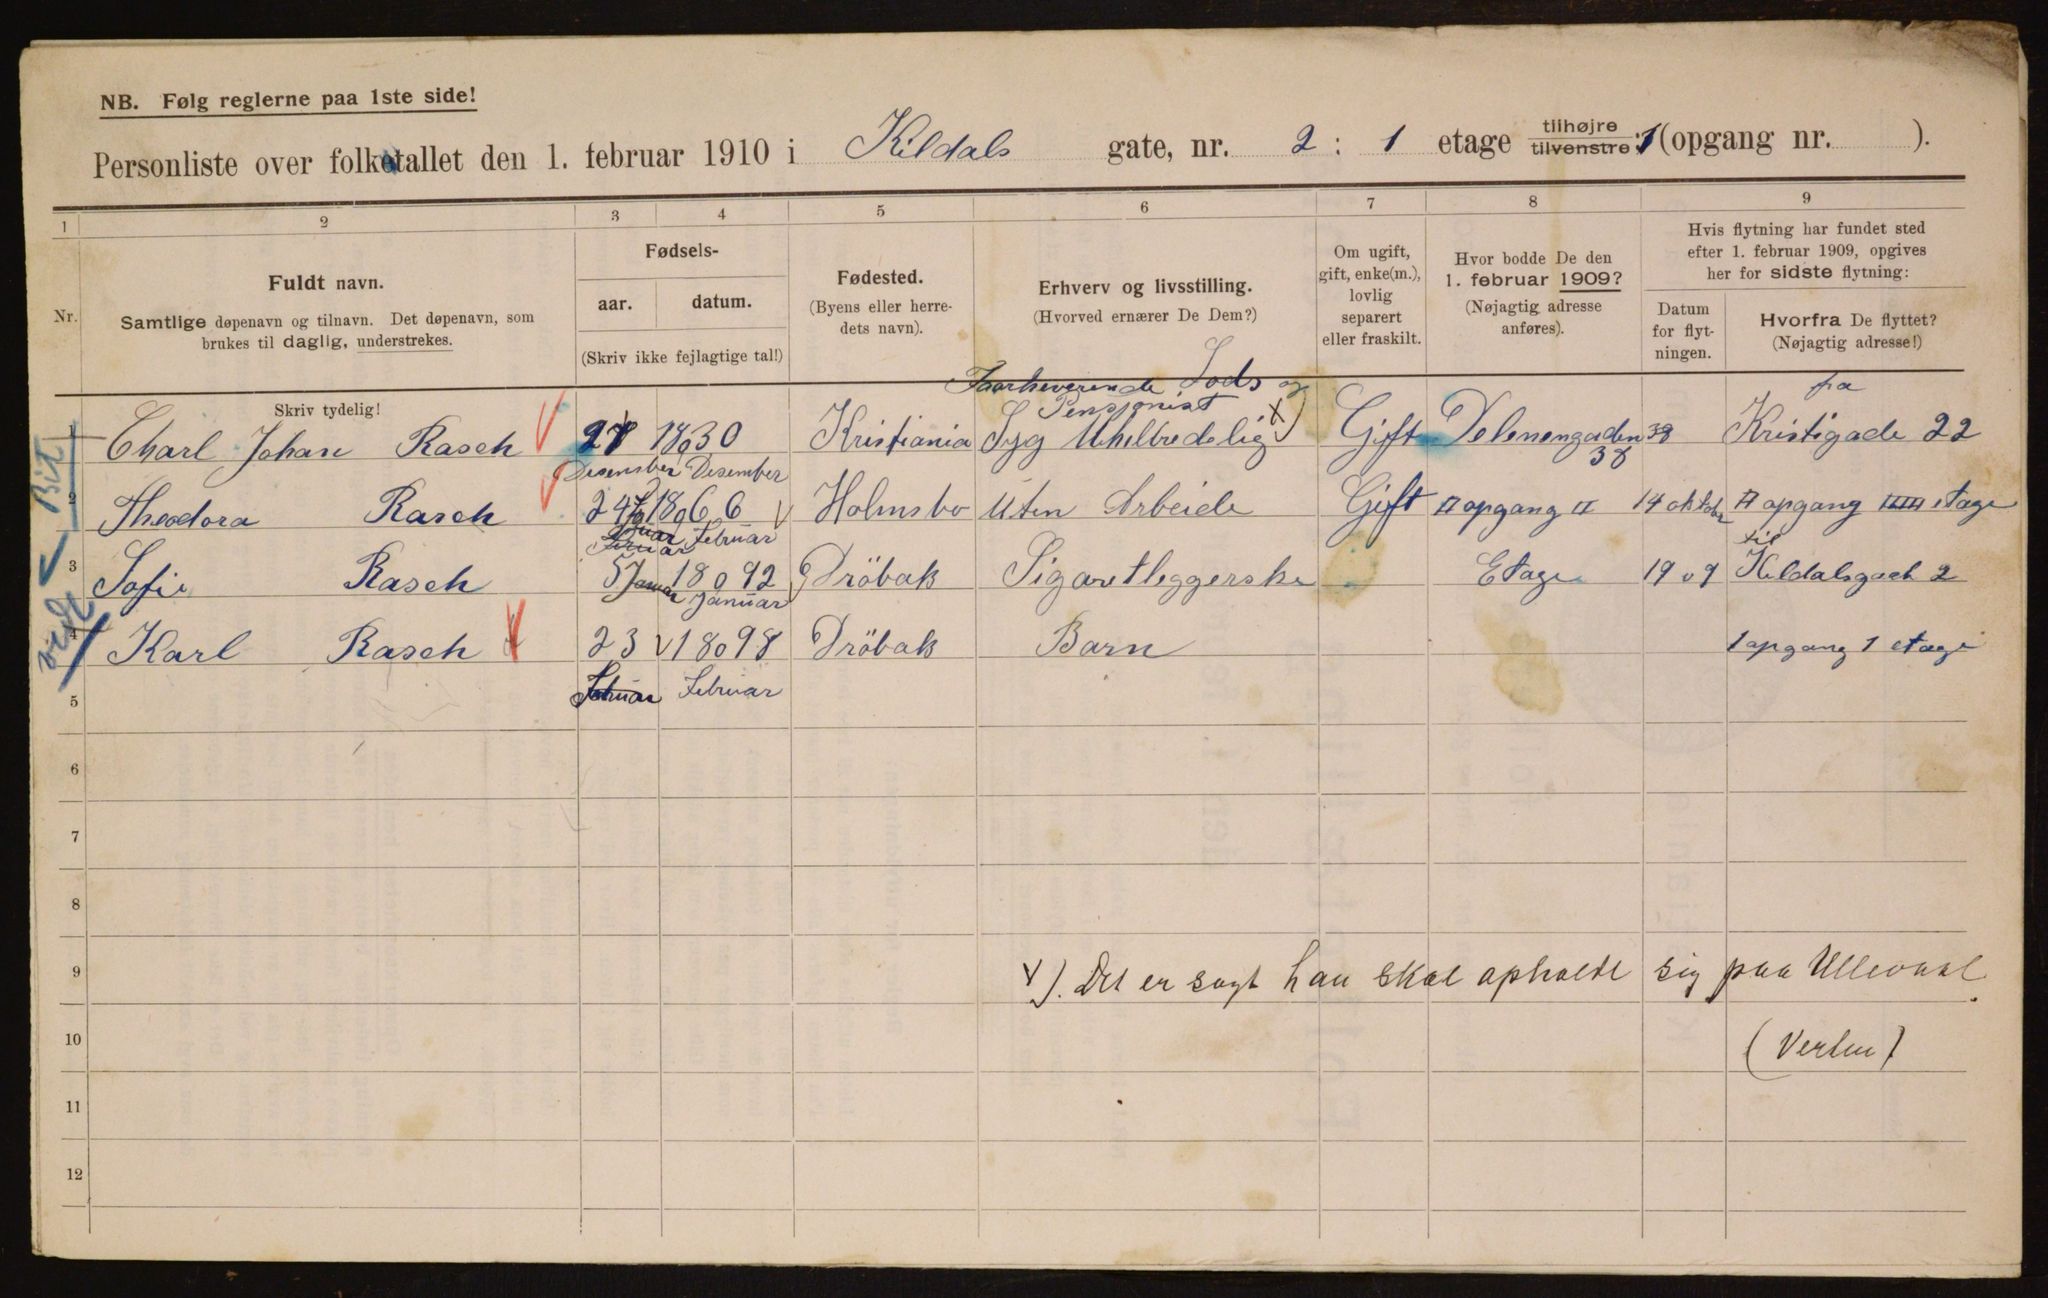 NB. Følg reglerne paa 1ste side!
Personliste over folketallet den 1. februar 1910 i Kildals gate, nr. 2 : 1 etage tilhøjre tilvenstre 1 (opgang nr. ).
1 2 3 4 5 6 7 8 9
Nr.
Fuldt navn.
Samtlige døpenavn og tilnavn. Det døpenavn, som
brukes til daglig, understrekes.
Skriv tydelig!
Fødsels-
aar. datum.
(Skriv ikke fejlagtige tal!)
Fødested.
(Byens eller herre-
dets navn).
Erhverv og livsstilling.
(Hvorved ernærer De Dem?)
Om ugift,
gift, enke(m.),
lovlig
separert
eller fraskilt.
Hvor bodde De den
1. februar 1909?
(Nøjagtig adresse
anføres).
Hvis flytning har fundet sted
efter 1. februar 1909, opgives
her for sidste flytning:
Datum
for flyt-
ningen.
Hvorfra De flyttet?
(Nøjagtig adresse!)
Lods og
Pensjonist fra
1 Charl Johan Rasch 27 1830 Kristiania Syg Uhelbredelig x) Gift 38 Kristigade 22
Desember Desember 38
2 Theodora Rasch 24 1866 Holmsbo Uten Arbeide Gift II opgang II 14 oktober II opgang IIII etage
Februar til
3 Sofie Rasch 5 1892 Dröbak Sigaretleggerske Etage 1909 Kildalsgade 2
Januar Januar
4 Karl Rasch 23 1898 Dröbak Barn 1 opgang 1 etage
Februar Februar
5
6
7
8
9 x). Det er sagt han skal opholde sig paa Ullevaal.
10 (Verten)
11
12